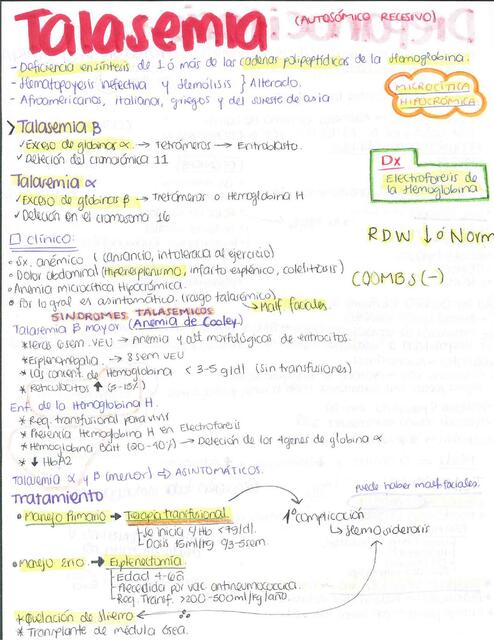 Talasemia (AUTOSÓMICO RECESIVO)
- Deficiencia en síntesis de 1 ó más de las cadenas polipeptídicas de la Hemoglobina.
- Hematopoyesis inefectiva y Hemólisis } Alterado.
- Afroamericanos, italianos, griegos y del sureste de asia
MICROCÍTICA
HIPOCRÓMICA
> Talasemia β
✓ Exceso de globinas α → Tetrámeros → Eritroblasto.
✓ Deleción del cromosoma 11
Dx
Electroforesis de
la Hemoglobina
Talasemia α
✓ Exceso de globinas β → Tretámeros o Hemoglobina H
✓ Deleción en el cromosoma 16
RDW ↓ ó Norm
COOMBS (-)
□ clínico:
• Sx. anémico ( cansancio, intolerancia al ejercicio)
• Dolor abdominal (Hiperesplenismo, infarto esplénico, colelitiasis)
• Anemia microcítica Hipocrómica.
• Por lo gral es asintomático. (rasgo talasémico) → Malf. faciales.
SINDROMES TALASEMICOS
Talasemia β mayor (Anemia de Cooley)
* 1eras 6 sem. VEU → Anemia y alt morfológicas de eritrocitos.
* Esplenomegalia. → 8 sem VEU
* [ ] as content. de Hemoglobina < 3-5 g/dl (sin transfusiones)
* Reticulocitos ↑ (5-15%)
Enf. de la Hemoglobina H.
* Req. transfusional para vivir
* Presencia Hemoglobina H en Electroforesis
* Hemoglobina Bart (20-40%) → Deleción de los 4 genes de globina α
* ↓ HbA2
Talasemia α y β (menor) ⇒ ASINTOMÁTICOS.
Tratamiento
• Manejo Primario → Terapia transfusional.
Se inicia c/Hb <7g/dl.
Dosis 15ml/kg c/3-5 sem.
1º complicación
↳ Hemosiderosis
puede haber malf. faciales.
• Manejo 2rio → Esplenectomía
Edad 4-6a
Precedida por vac. antineumocócica.
Req. Transf. >200-500ml/kg/año.
* Quelación de
* Transplante de médula ósea.